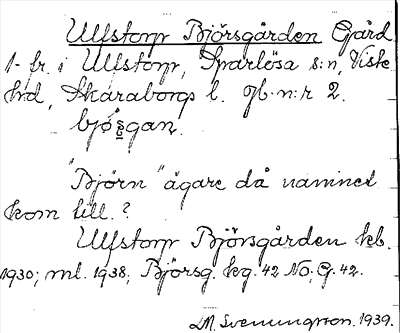 Ulfstorp Björsgården Gård
1 fr. i Ulfstorp, Sparlösa s:n, Viste
hrd, Skaraborgs l. Jb. n:r 2.
bjø̀s̥gan.
"Björn" ägare då namnet
kom till. ?
Ulfstorp Björsgården kb.
1930; ml. 1938; Björsg. kg. 42 NO; G. 42.
M. Svenungsson. 1939.